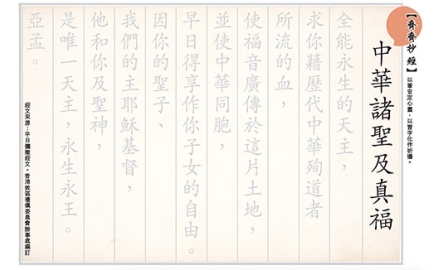 【齊齊抄經】以筆安定心靈,以習字化作祈禱。
中華諸聖及真福
全能永生的天主,
求你藉歷代中華殉道者
所流的血,
使福音廣傳於這片土地,
並使中華同胞,
早日得享作你子女的自由。
因你的聖子、
我們的主耶穌基督,
他和你及聖神,
是唯一天主,永生永王。
亞孟。
經文來源:平日彌撒經文,香港教區禮儀委員會辦事處編訂